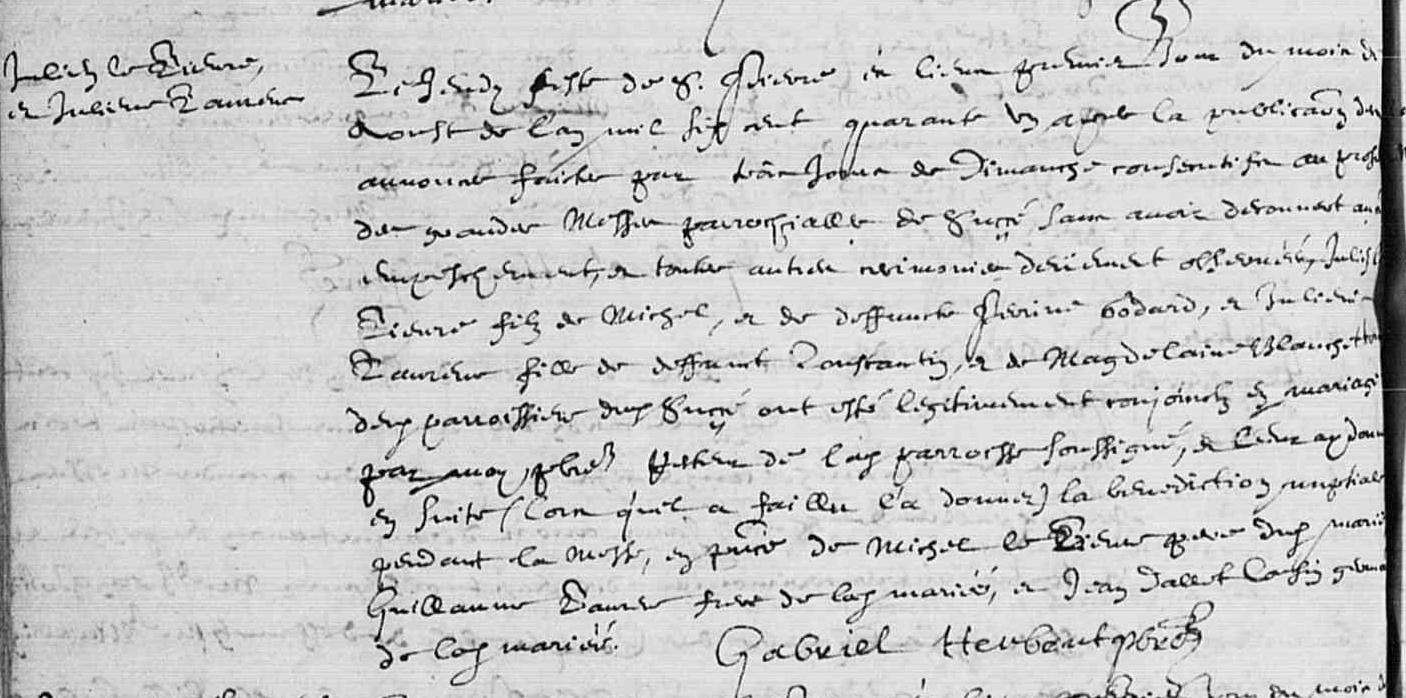 Julien le Lievre,
et Juliene Laurens
Le Jeudy feste de S. Pierre és liens premier Jour du mois d
Aoust de l'an mil six cent quarante un apres la publicaõn des
annonces faictes par trois Jours de Dimanche consecutifs au prosne
des grandes Messes parrochialles de Sucé sans avoir decouvert auc
empeschement, et toutes autres ceremonies deüement observées, Julien
Lievre filz de Michel, et de deffuncte Perrine bodard, et Juliene
Laurens fille de deffunct Constantin, et de Magdelaine Blanchet
deux parroissiens dud. Sucé ont esté legitimement conjoinctz en mariage
par moy pbre Recteur de lad. parroesse soussigné, et leur ay donné
en suite (lors qu'il a faillu la donner) la benediction nuptiale
pendant la Messe, en p̃nce de Michel le Lievre pere dud. marié
Guillaume Laurens frere de lad. mariée, et Jean Dallet Cousin germain
de lad. mariée. Gabriel Herbert pbre